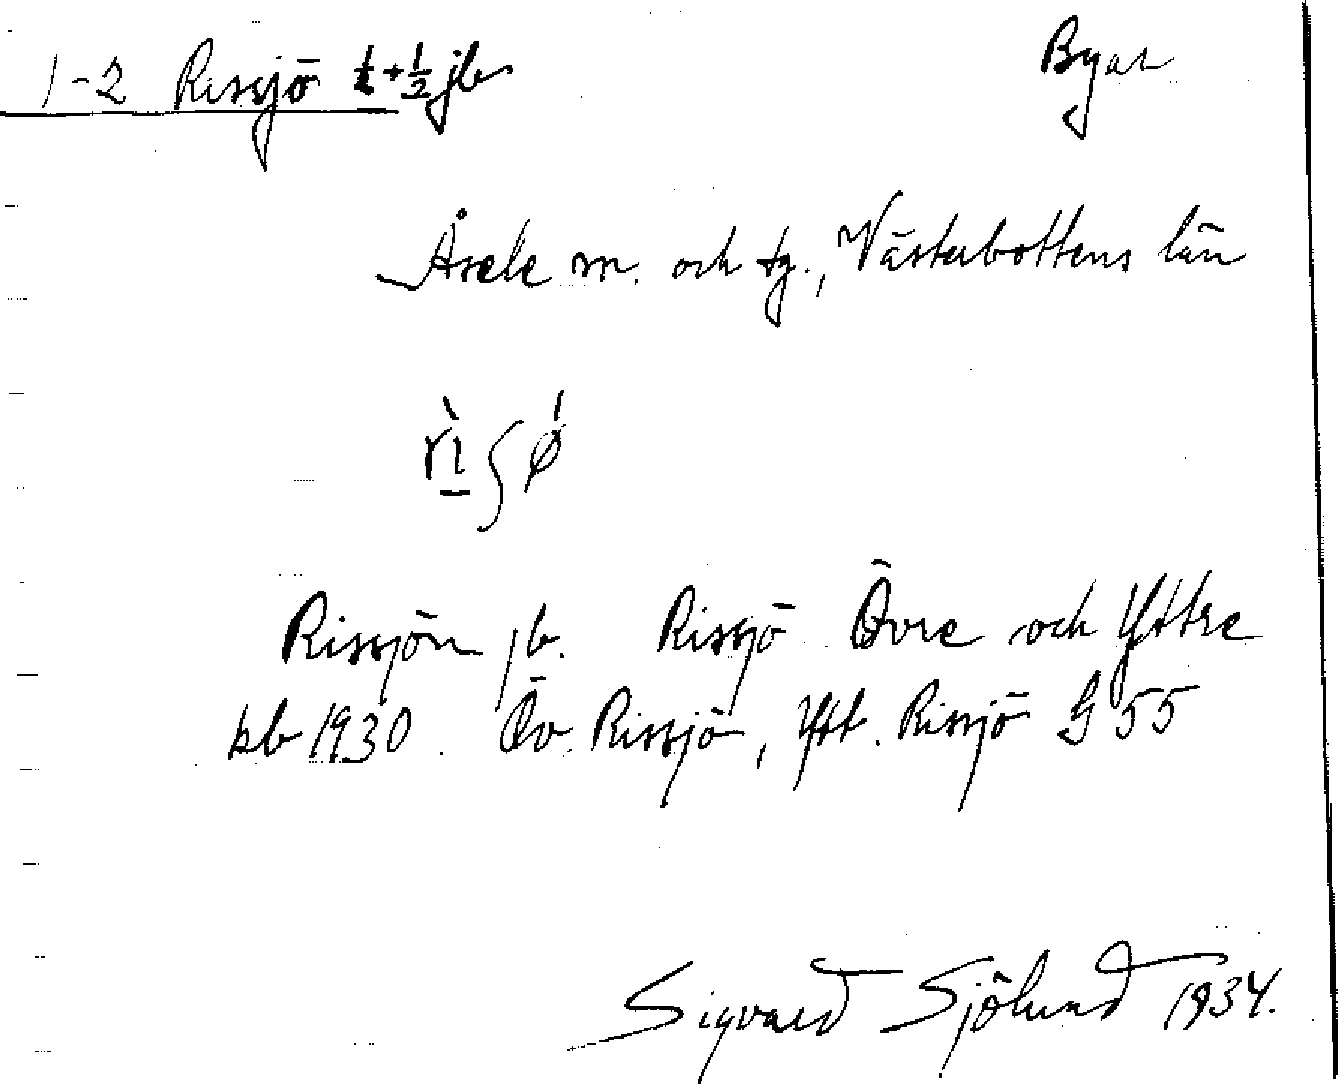 1-2 Rissjö ½+½ jb Byar
Åsele sn. och tg., Västerbottens län
rì̱ʃǿ
Rissjön jb. Rissjö Övre och Yttre
kb 1930. Öv. Rissjö, Ytt. Rissjö G 55
Sigvard Sjölund 1934.